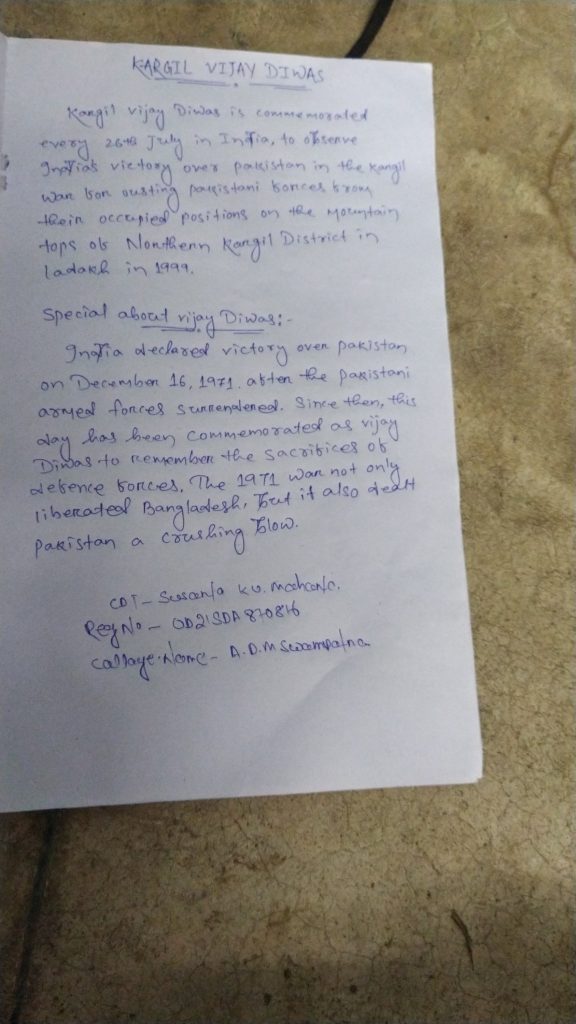 KARGIL VIJAY DIWAS
Kargil vijay Diwas is commemorated
every 26th July in India, to observe
India's victory over pakistan in the Kargil
war for ousting pakistani forces from
their occupied positions on the mountain
tops of Northern Kargil District in
ladakh in 1999.
Special about vijay Diwas:-
India declared victory over pakistan
on December 16, 1971. after the pakistani
armed forces surrendered. Since then, this
day has been commemorated as vijay
Diwas to remember the sacrifices of
defence forces. The 1971 war not only
liberated Bangladesh, but it also dealt
pakistan a crushing blow.
CDT - Susanta ku. Mahanta.
Reg No - OD21SDA870816
Callage Name - A.D.M Swampatna